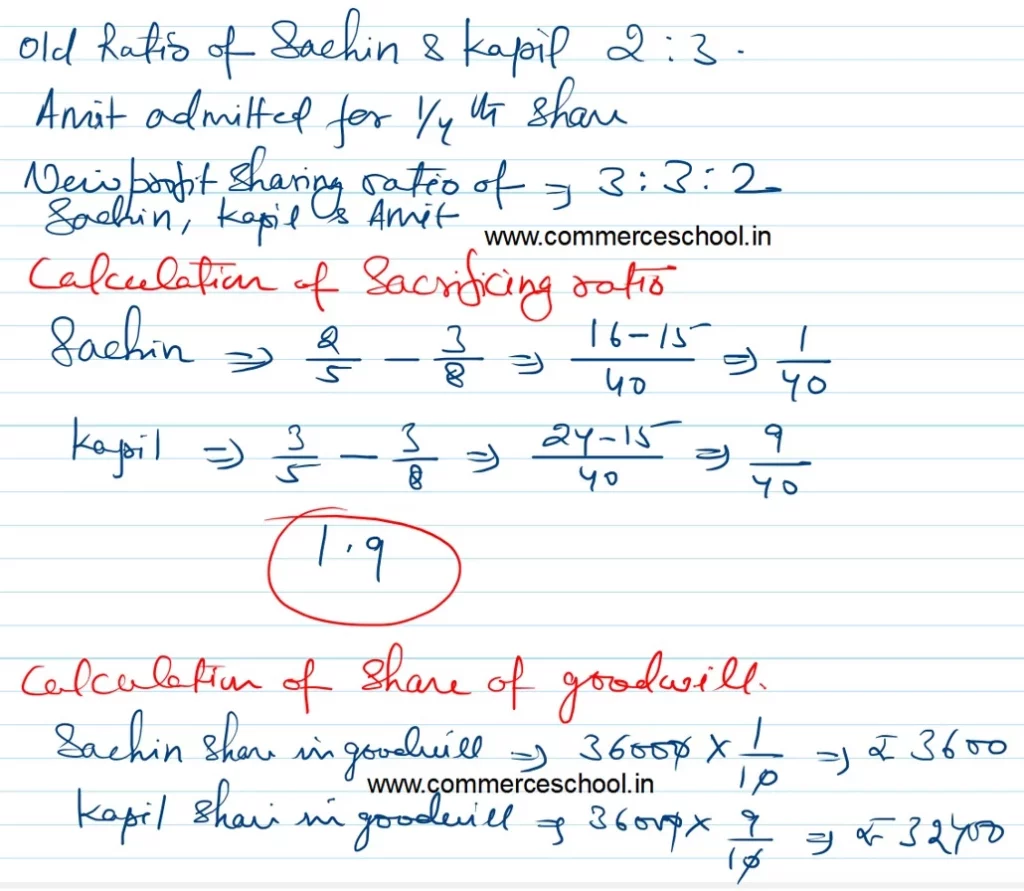 Old Ratio of Sachin & Kapil 2 : 3 .
Amit admitted for 1/4 th share
New profit sharing ratio of ⇒ 3 : 3 : 2
Sachin, Kapil & Amit
www.commerceschool.in
Calculation of Sacrificing ratio
Sachin ⇒ 2/5 - 3/8 ⇒ 16-15/40 ⇒ 1/40
Kapil ⇒ 3/5 - 3/8 ⇒ 24-15/40 ⇒ 9/40
1 . 9
Calculation of Share of goodwill.
Sachin share in goodwill ⇒ 36000 × 1/10 ⇒ ₹ 3600
www.commerceschool.in
Kapil share in goodwill ⇒ 36000 × 9/10 ⇒ ₹ 32400